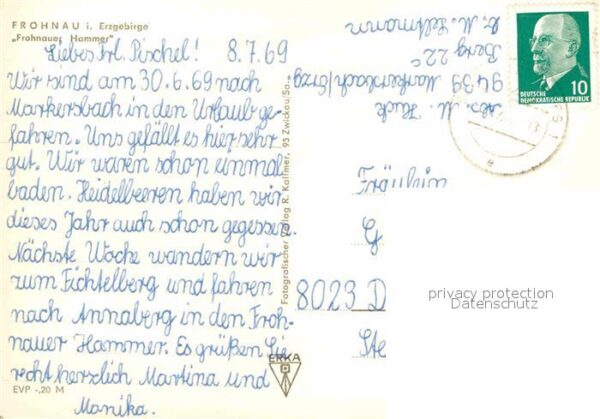 FROHNAU i. Erzgebirge
„Frohnauer Hammer"
Liebes Frl. Pischel! 8.7.69
Wir sind am 30.6.69 nach
Markersbach in den Urlaub ge-
fahren. Uns gefällt es hier sehr
gut. Wir waren schon einmal
baden. Heidelbeeren haben wir
dieses Jahr auch schon gegessen.
Nächste Woche wandern wir
zum Fichtelberg und fahren
nach Annaberg in den Froh-
nauer Hammer. Es grüßen Sie
recht herzlich Martina und
Monika.
EVP -,20 M
Fotografischer Verlag R. Kallmer, 95 Zwickau/Sa.
ERKA
Abs. M.
9439 Markersbach/Erzg
Berg 22c
b. M.
DEUTSCHE
DEMOKRATISCHE REPUBLIK
10
8023 D
Ste
privacy protection
Datenschutz